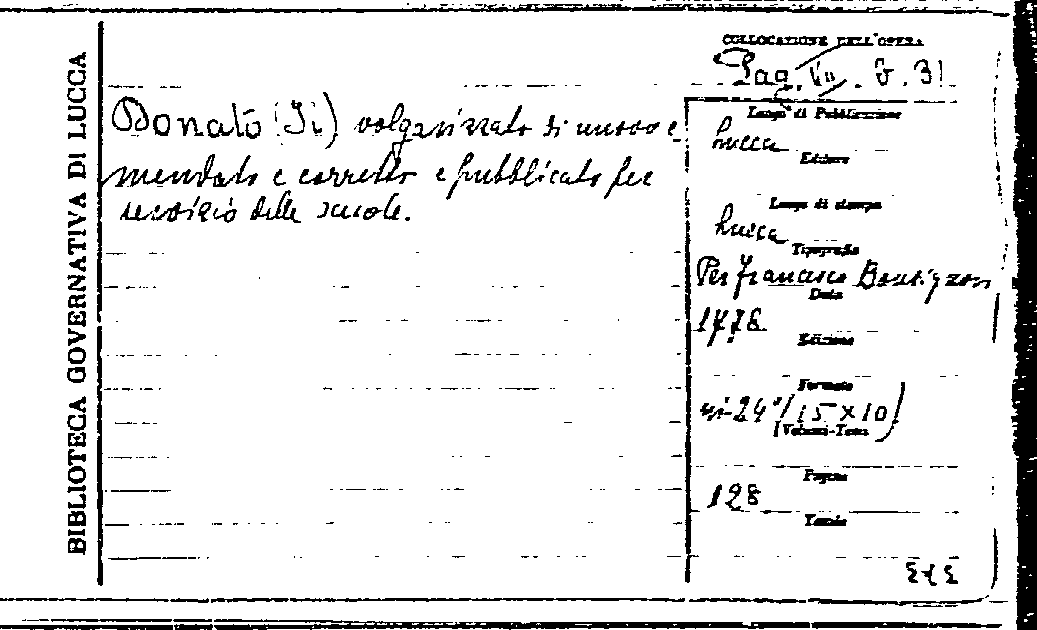 BIBLIOTECA GOVERNATIVA DI LUCCA
COLLOCAZIONE DELL'OPERA
Donato (Il) volgarizzato di nuovo e
mendato e corretto e pubblicato per
servizio delle scuole.
Luogo di Pubblicazione
Lucca
Editore
Luogo di stampa
Lucca
Tipografia
Per Francesco
Data
Edizione
Formato
in-24° (15 X 10)
(Volumi-Tomi
Pagine
128
Tavole